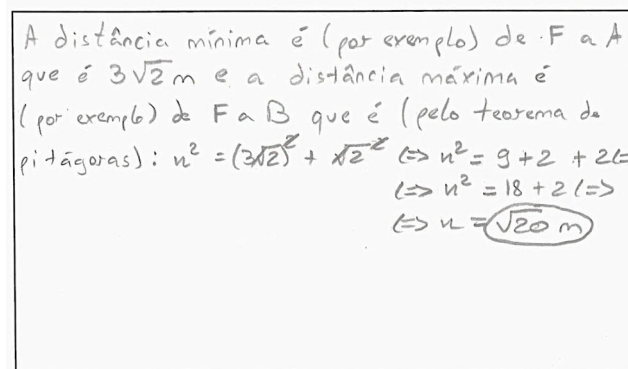 A distância mínima é (por exemplo) de F a A
que é 3√2 m e a distância máxima é
(por exemplo) de F a B que é (pelo teorema de
pitágoras): x² = (3√2)² + √2² (=> x² = 9+2 + 2(=
(=> x² = 18 + 2 (=>
(=> x = √20 m